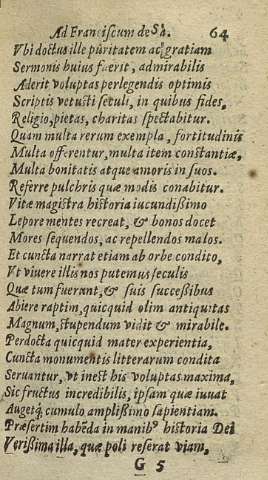 Ad Franciscum de Sà. 64
Vbi doctus ille puritatem ac gratiam
Sermonis huius fuerit, admirabilis
Aderit voluptas perlegendis optimis
Scriptis vetusti seculi, in quibus fides,
Religio, pietas, charitas spectabitur.
Quam multa rerum exempla, fortitudinis
Multa offerentur, multa item constantiæ,
Multa bonitatis atque amoris in suos.
Referre pulchris quæ modis conabitur.
Vitæ magistra historia iucundißimo
Lepore mentes recreat, & bonos docet
Mores sequendos, ac repellendos malos.
Et cuncta narrat etiam ab orbe condito,
Vt viuere illis nos putemus seculis
Quæ tum fuerant, & suis succeßibus
Abiere raptim, quicquid olim antiquitas
Magnum, stupendum vidit & mirabile.
Perdocta quicquid mater experientia,
Cuncta monumentis litterarum condita
Seruantur, vt inest his voluptas maxima,
Sic fructus incredibilis, ipsam quæ iuuat
Augetq́; cumulo amplißimo sapientiam.
Præsertim habēda in manib⁹ historia Dei
Verißima illa, quæ poli reserat viam,
G 5